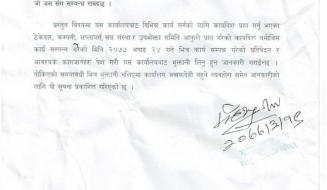 जो जस संग सम्बन्ध राख्दछ ।
प्रस्तुत विषयमा यस कार्यालयबाट विभिन्न कार्य गर्नको लागि कार्यादेश प्राप्त गर्नु भएका
ठेकेदार, कम्पनी, सप्लायर्स, संघ संस्था र उपभोक्ता समिति आफुले प्राप्त गरेको कार्यादेश बमोजिम कार्य
सम्पन्न गरेको मिति २०७७ अषाढ २४ गते भित्र कार्य सम्पन्न गरेको प्रतिवेदन र
आवश्यक कागजातहरु पेश गरी यस कार्यालयबाट भुक्तानी लिनु हुन जानकारी गराईन्छ ।
तोकिएको समयावधी भित्र भुक्तानी नलिएमा कार्यालय जवाफदेही नहुने व्यहोरा समेत जानकारीको
लागि यो सूचना प्रकाशित गरिएको छ ।